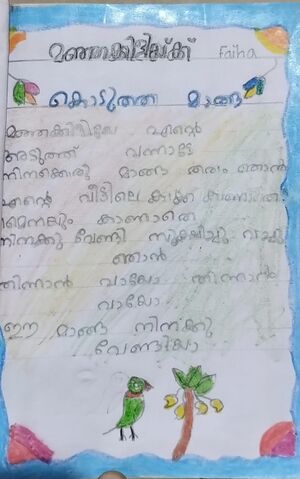 മഞ്ഞക്കിളിയ്ക്ക്
Faiha
കൊടുത്ത മാങ്ങ
മഞ്ഞക്കിളിയേ എന്റെ
അടുത്ത് വന്നാട്ടേ
നിനക്കൊരു മാങ്ങ തരാം ഞാൻ
എന്റെ വീട്ടിലെ കാക്ക കാണാതെ
കാണാതെ
നിനക്കു വേണ്ടി സൂക്ഷിച്ചു വച്ചു
ഞാൻ
തിന്നാൻ വായോ തിന്നാൻ
വായോ
ഈ മാങ്ങ നിനക്കു
വേണ്ടിയാ